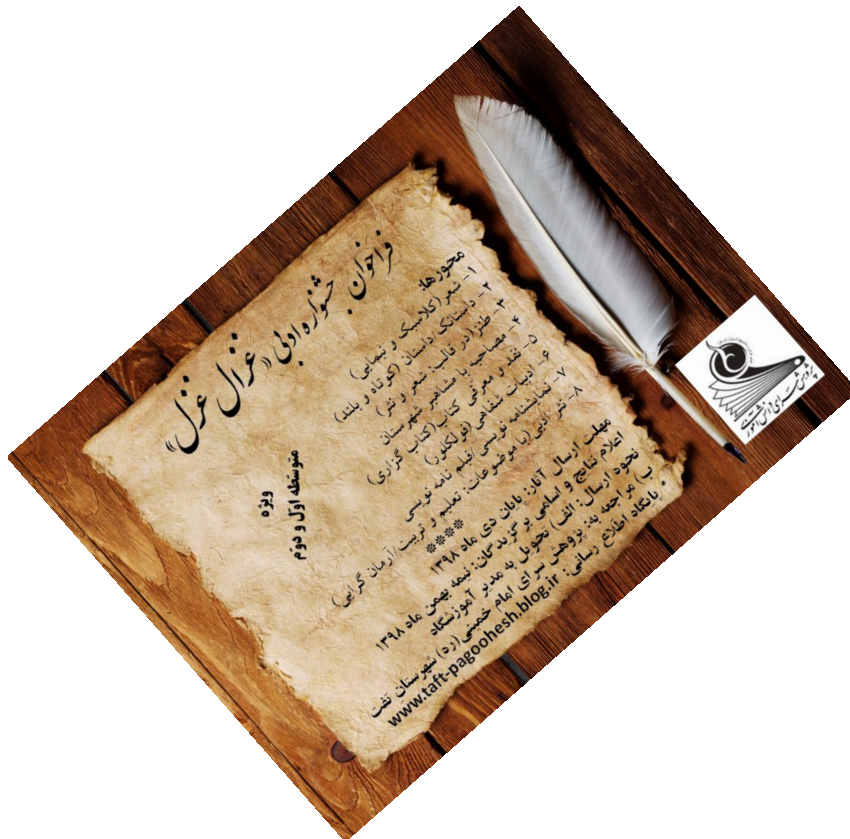 فراخوان جشنواره ادبی «غزال غزل»
ویژه
متوسطه اول و دوم
محورها:
۱- شعر (کلاسیک و نیمایی)
۲- داستانک داستان (کوتاه و بلند)
۳- طنز (در قالب: شعر و نثر)
۴- مصاحبه با مشاهیر شهرستان
۵- نقد و معرفی کتاب (کتاب گزاری)
۶- ادبیات شفاهی (فولکلور)
۷- نمایشنامه نویسی/فیلم نامه نویسی
۸- نثر ادبی (با موضوعات: تعلیم و تربیت/آرمان گرایی)
****
مهلت ارسال آثار: پایان دی ماه ۱۳۹۸
اعلام نتایج و اسامی برگزیدگان: نیمه بهمن ماه ۱۳۹۸
نحوه ارسال: الف) تحویل به مدیر آموزشگاه
ب) مراجعه به: پژوهش سرای امام خمینی(ره) شهرستان تفت
* پایگاه اطلاع رسانی: www.taft-pagoohesh.blog.ir
پژوهش سرای دانش آموزی